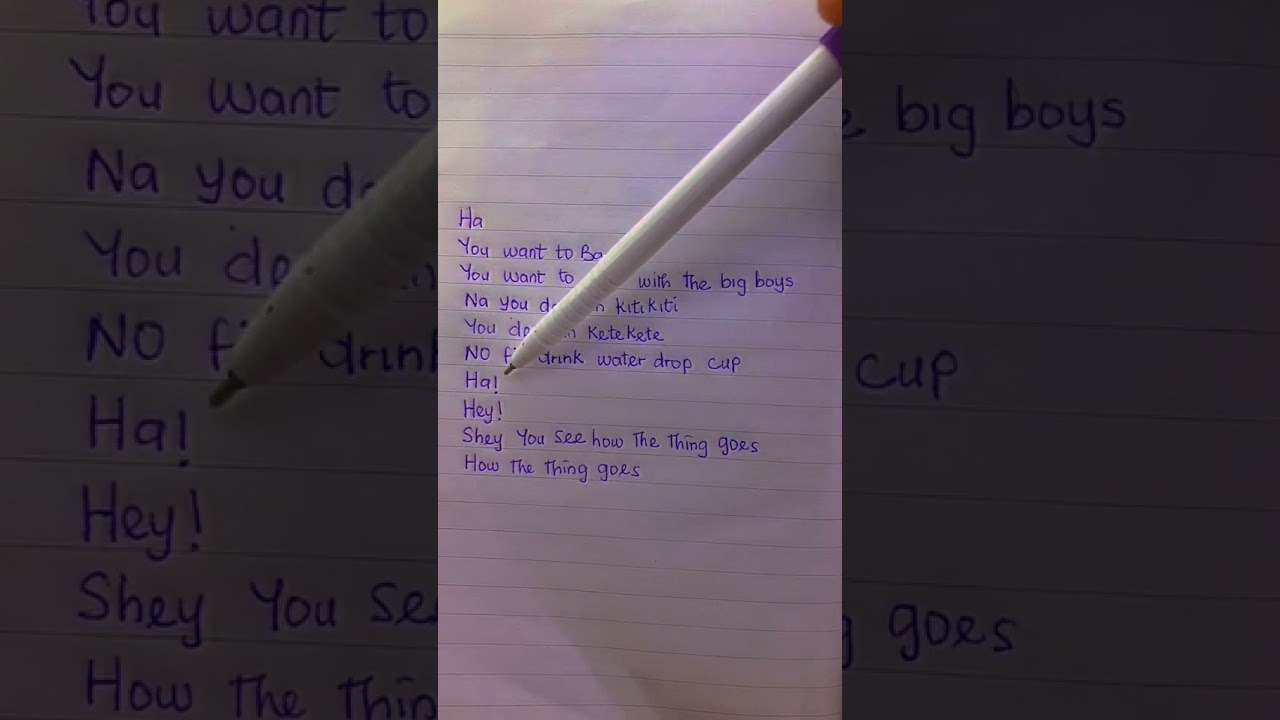 Ha
You want to
You want to with the big boys
Na you kitikiti
You Ketekete
NO drink water drop cup
Ha!
Hey!
Shey You see how The Thing goes
How The Thing goes